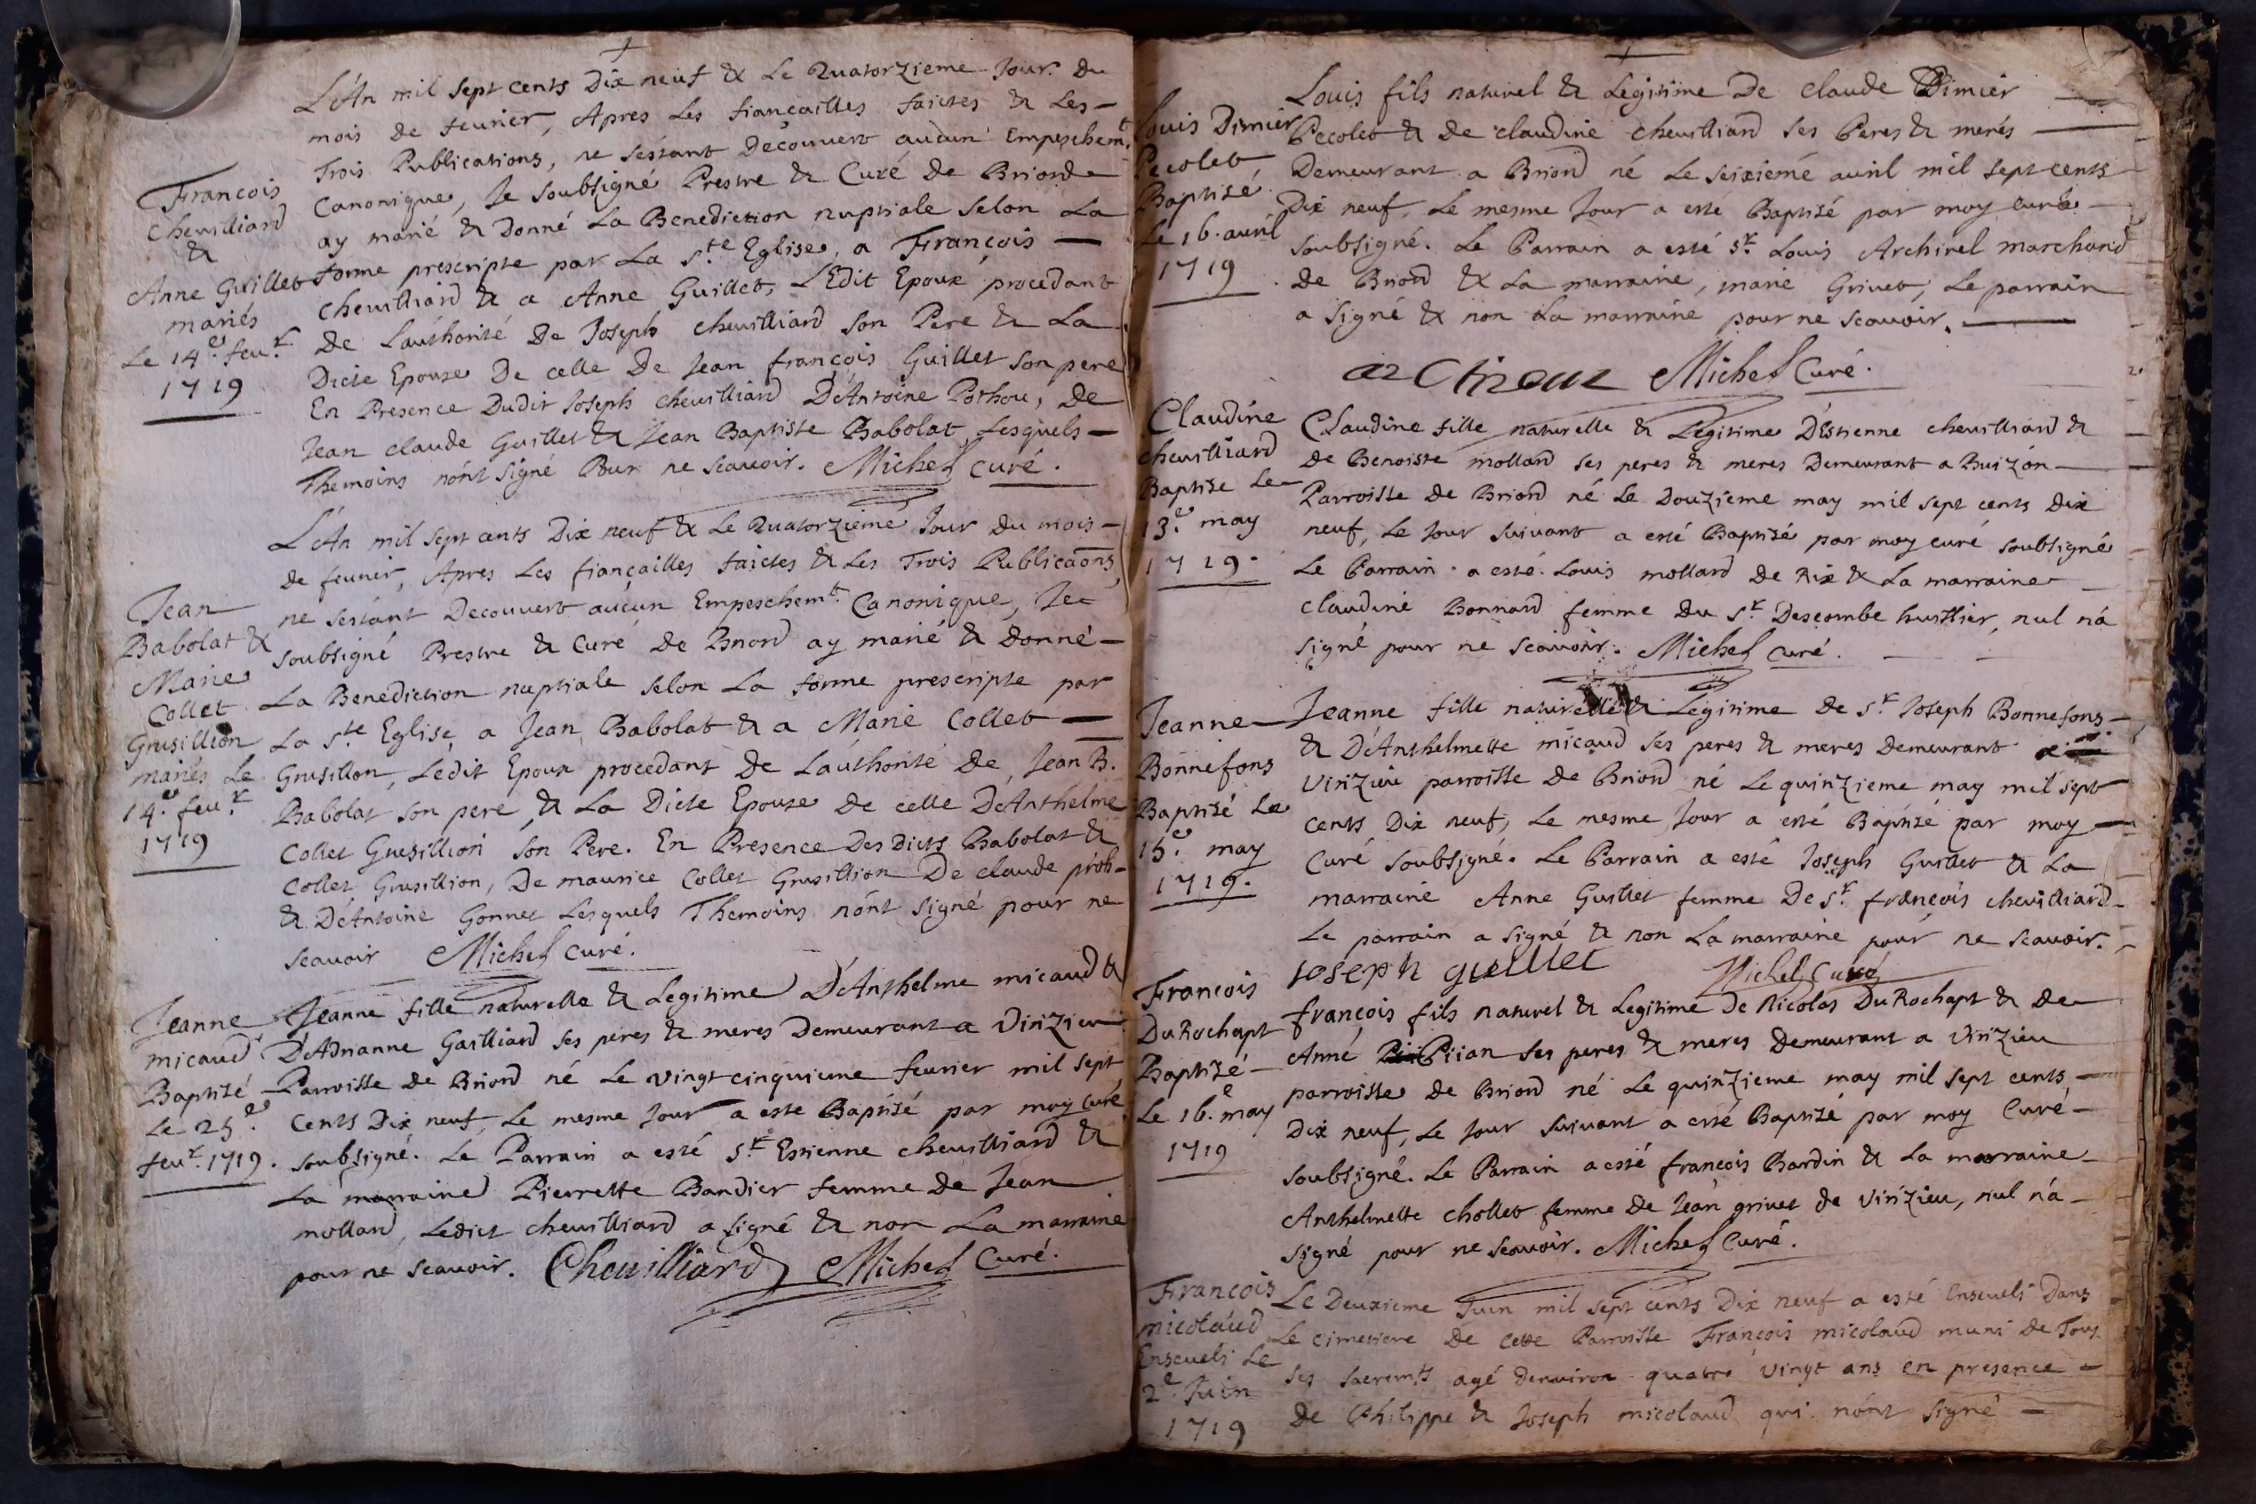 François
Cheuilliard
&
Anne Guillet
mariés
Le 14.e feu.r
1719
L'An mil sept cents Dix neuf & Le Quatorzieme Jour du
mois de feurier, Apres Les fiancailles faictes & Les
Trois Publications, ne s'estant Découuert aucun Empeschem.t
Canonique, Je soubsigné Prestre & Curé de Briord
ay marié & donné La Benediction nuptiale selon La
forme prescripte par La s.te Eglise, a François
Cheuilliard & a Anne Guillet, L'Edit Epoux procedant
De L'authorité De Joseph cheuilliard son Pere & La
Dicte Epouse De celle De Jean françois Guillet son pere
En Presence Dudit Joseph cheuilliard D'Antoine Pothou, De
Jean claude Guillet & Jean Baptiste Babolat, Lesquels
Themoins n'ont signé Pour ne scauoir. Michel curé.
Jean
Babolat &
Marie
Collet
Grusillion
mariés Le
14.e feu.r
1719
L'An mil sept cents Dix neuf & Le Quatorzieme Jour du mois
de feurier, Apres Les fiançailles faictes & Les Trois Publicaons,
ne sestant Decouuert aucun Empeschem.t Canonique, Je
soubsigné Prestre & Curé de Briord ay marié & donné
La Benediction nuptiale selon La forme prescripte par
La s.te Eglise, a Jean Babolat & a Marie Collet
Grusillon, Ledit Epoux procedant De L'authorité De Jean B.
Babolat son pere & La Dicte Epouse De celle D'Anthelme
Collet Grusillion son Pere. En Presence Des Dicts Babolat &
Collet Grusillion, De maurice Collet Grusillion De claude
& D'Antoine Gonnet Lesquels Themoins n'ont signé pour ne
scauoir Michel curé.
Jeanne
micaud
Baptisé
Le 25.e
feu.r 1719.
Jeanne fille naturelle & Legitime D'Anthelme micaud &
D'Adrianne Gailliard ses peres & meres Demeurant a Virizieu
Parroisse de Briord né Le vingt cinquieme feurier mil sept
cents Dix neuf, Le mesme Jour a este Baptisé par moy curé
soubsigné. Le Parrain a esté s.r Estienne cheuilliard &
La marraine Pierrette Bandier femme de Jean
mollard, Ledict cheuilliard a signé & non La marraine
pour ne scauoir. Cheuilliard Michel Curé.
Louis Dimier
Pecolet
Baptisé
Le 16. auril
1719
Louis fils naturel & Legitime De claude Dimier
Pecolet & de claudine cheuilliard ses Peres & meres
Demeurant a Briord né Le seixiemé auril mil sept cents
Dix neuf, Le mesme Jour a esté Baptisé par moy curé
soubsigné. Le Parrain a esté s.r Louis Archirel marchand
de Briord & La marraine, marie Griuet, Le parrain
a signé & non La marraine pour ne scauoir.
Michel Curé.
Claudine
cheuilliard
Baptise Le
13.e may
1719.
Claudine fille naturelle & Legitime D'Estienne cheuilliard &
de Benoiste mollard ses peres & meres Demeurant a Buizon
Parroisse de Briord né Le Douzieme may mil sept cents Dix
neuf, Le Jour suiuant a esté Baptisé par moy curé soubsigné
Le Parrain a esté Louis mollard de Rix & La marraine
claudine Bonnard femme du s.r Descombe huissier, nul n'a
signé pour ne scauoir. Michel curé.
Jeanne
Bonnefons
Baptisé Le
15.e may
1719.
Jeanne fille naturelle & Legitime de s.r Joseph Bonnefons
& D'Anthelmette micaud ses peres & meres Demeurant a
Virizieu parroisse de Briord né Le quinzieme may mil sept
cents Dix neuf, Le mesme Jour a esté Baptisé par moy
Curé soubsigné. Le Parrain a esté Joseph Guillet & La
marraine Anne Guillet femme De s.r françois cheuilliard
Le parrain a signé & non La marraine pour ne scauoir.
Joseph guillet Michel Curé
François
DuRochapt
Baptizé
Le 16.e may
1719
françois fils naturel & Legitime De Nicolas DuRochapt & de
Anne Piian ses peres & meres Demeurant a Virizieu
parroisse de Briord né Le quinzieme may mil sept cents
Dix neuf, Le Jour suiuant a esté Baptizé par moy Curé
soubsigné. Le Parrain a esté françois Bardin & La marraine
Anthelmette chollet femme de Jean griuet de Virizieu, nul n'a
signé pour ne scauoir. Michel Curé.
François
micolaud
Enseueli Le
2.e Juin
1719
Le Deuxieme Juin mil sept cents Dix neuf a esté Enseueli Dans
Le cimetiere de cette Parroisse François micolaud muni de Tous
ses sacrem.ts agé denuiron quatre vingt ans en presence
de Philippe & Joseph micolaud qui n'ont signé